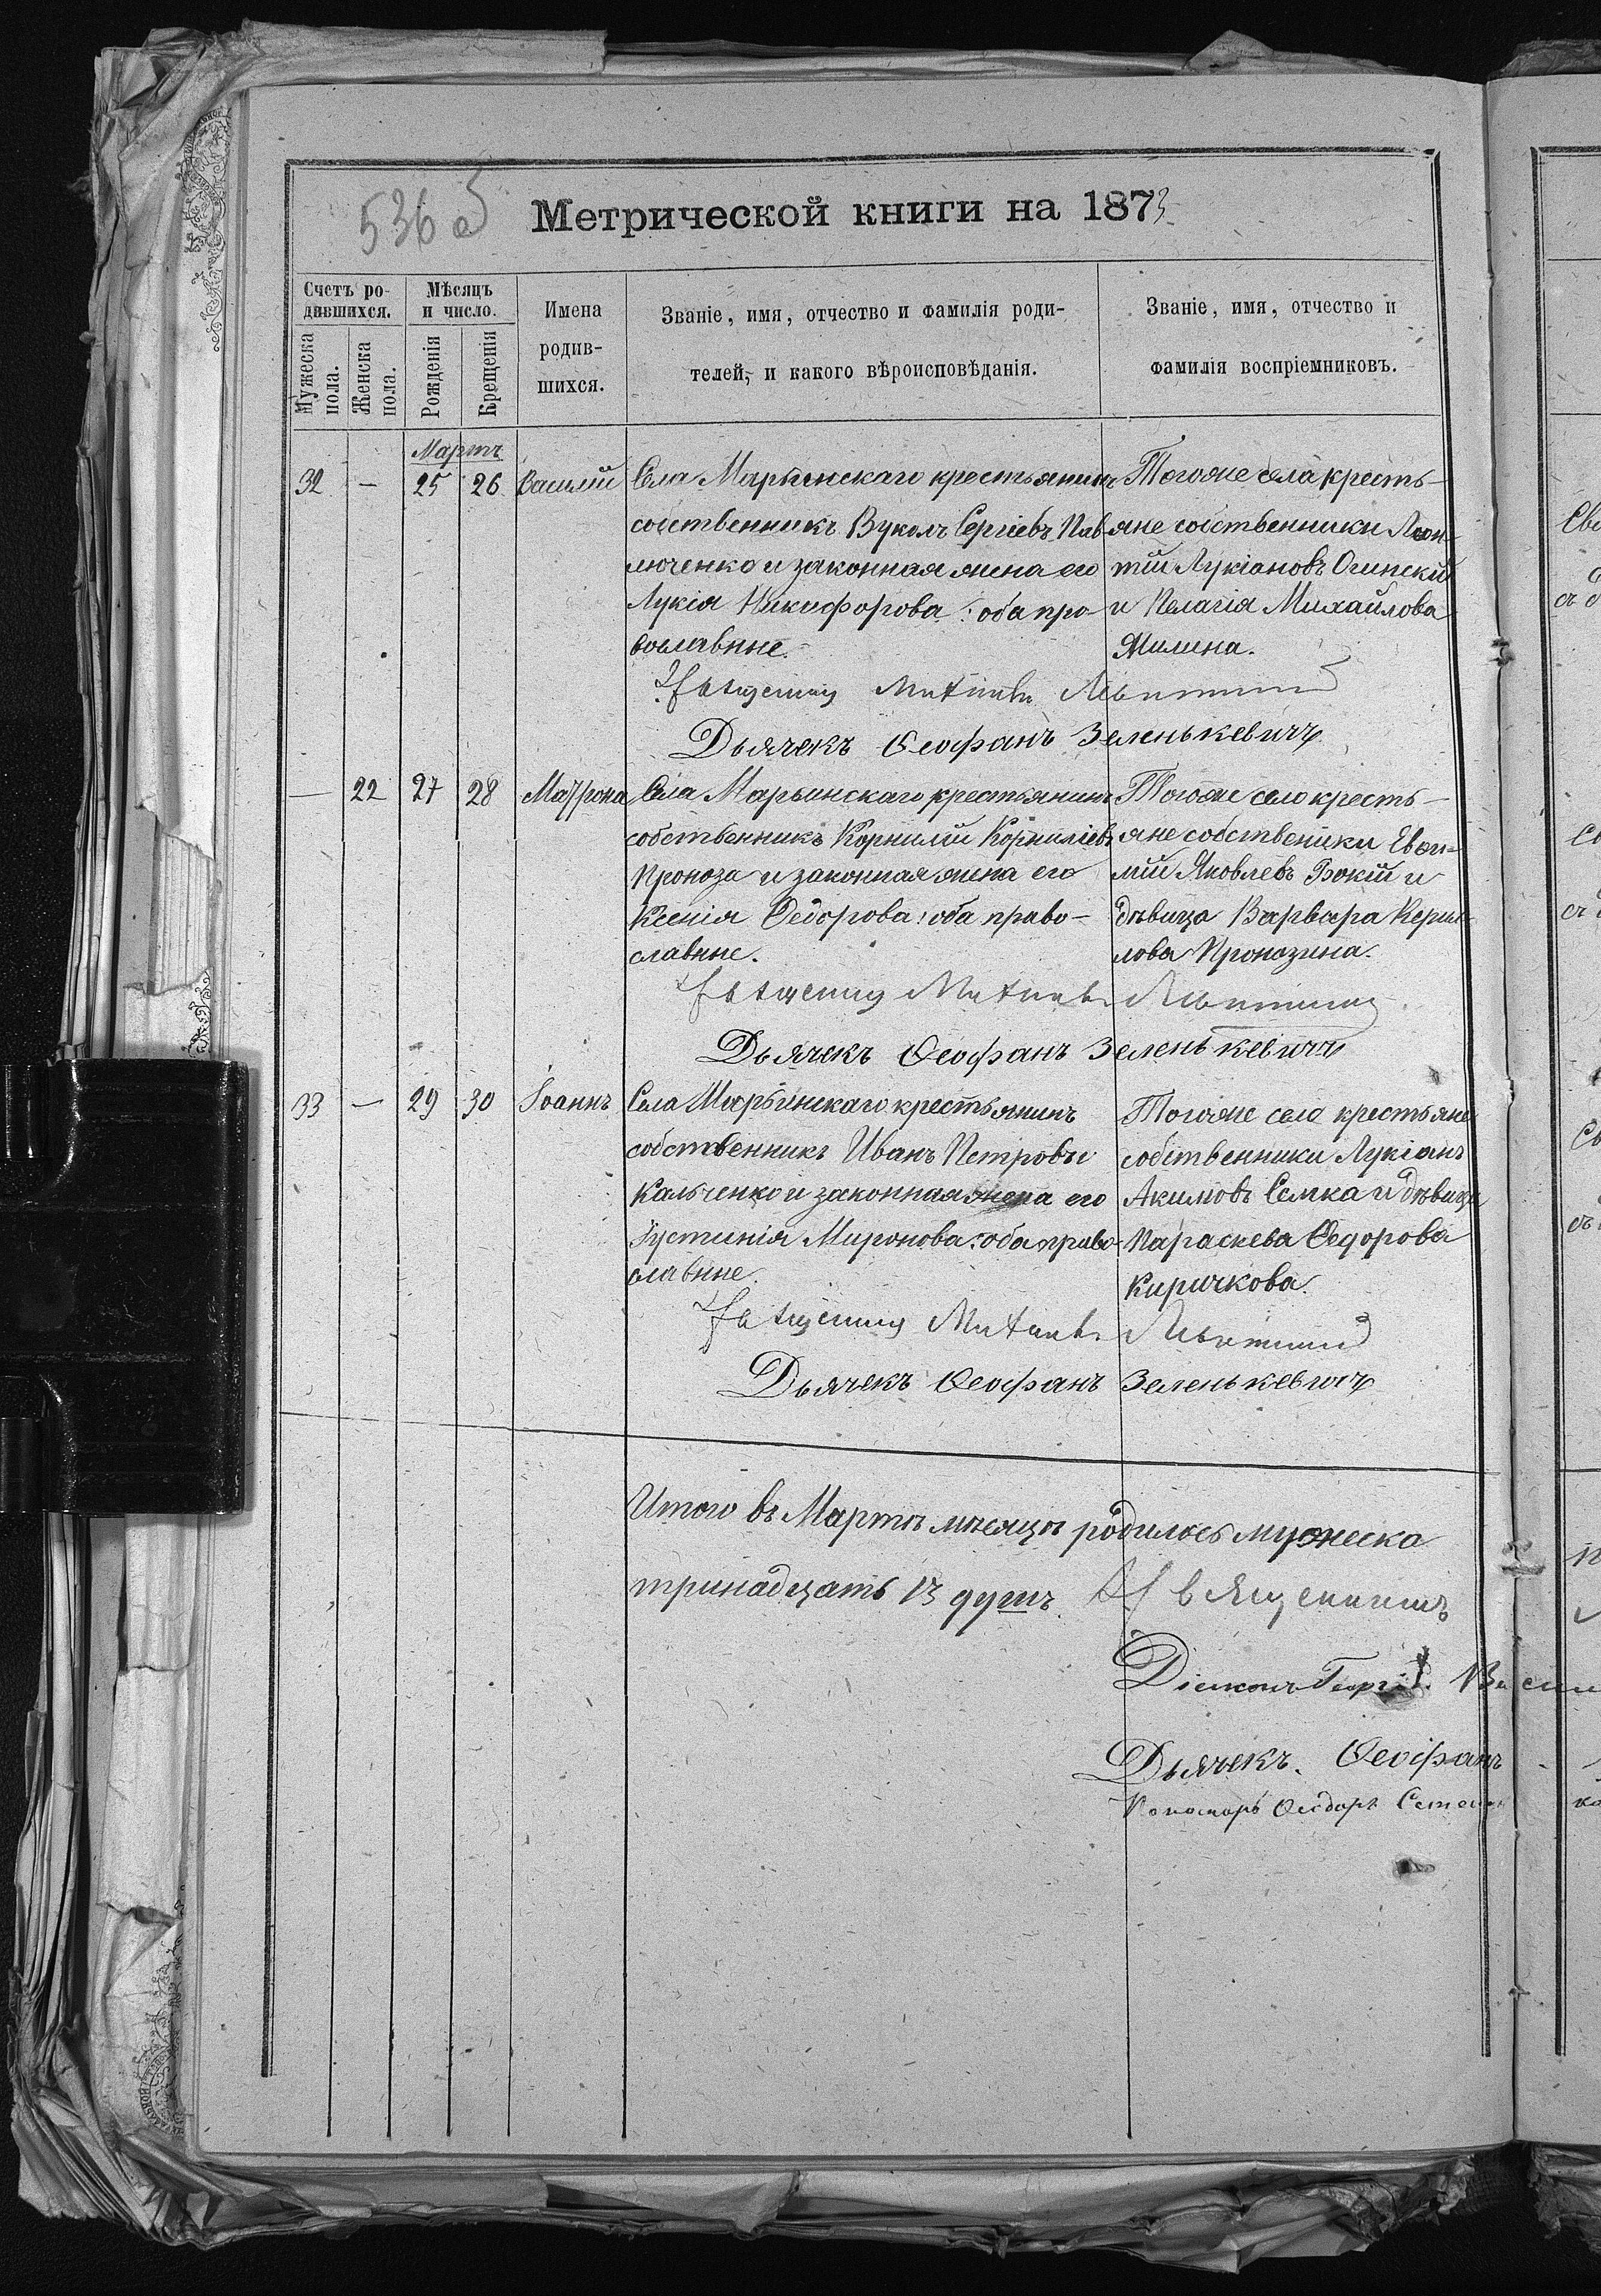 536 б
Метрической книги на 1873
Счетъ ро-
дившихся.
Мужеска
пола.
Женска
пола.
Мѣсяцъ
и число.
Рожденія
Крещенія
Имена
родив-
шихся.
Званіе, имя, отчество и фамилія роди-
телей, и какого вѣроисповѣданія.
Званіе, имя, отчество и
фамилія воспріемниковъ.
Мартъ
32 — 25 26 Василій
Села Марьинскаго крестьянинъ
собственникъ Вуколъ Сергіевъ Пав-
люченко и законная жена его
Лукія Никифорова: оба пра-
вославные.
Тогоже села кресть-
яне собственники Леон-
тій Лукіановъ Огинскій
и Пелагія Михайлова
Милина.
Священникъ
Дьячекъ Ѳеофанъ Зеленькевичъ
— 22 27 28 Матрона
Села Марьинскаго крестьянинъ
собственникъ Корнилій Корниліевъ
Проноза и законная жена его
Ксенія Ѳедорова: оба право-
славные.
Тогоже села кресть-
яне собственики Евфи-
мій Яковлевъ Бокій и
дѣвица Варвара Корни-
лова Пронозина.
Священникъ
Дьячекъ Ѳеофанъ Зеленькевичъ
33 — 29 30 Іоаннъ
Села Марьинскаго крестьянинъ
собственникъ Иванъ Петровъ
Кальченко и законная жена его
Іустинія Миронова: оба право-
славные.
Тогоже села крестьяне
собственники Лукіанъ
Акимовъ Семка и дѣвица
Параскева Ѳедорова
Киричкова.
Священникъ
Дьячекъ Ѳеофанъ Зеленькевичъ
Итого въ Мартѣ мѣсяцѣ родилось мужеска
тринадцать 13 душъ.
Священникъ
Діаконъ Георгій Васил
Дьячекъ Ѳеофанъ
Пономарь Ѳеодоръ Семен